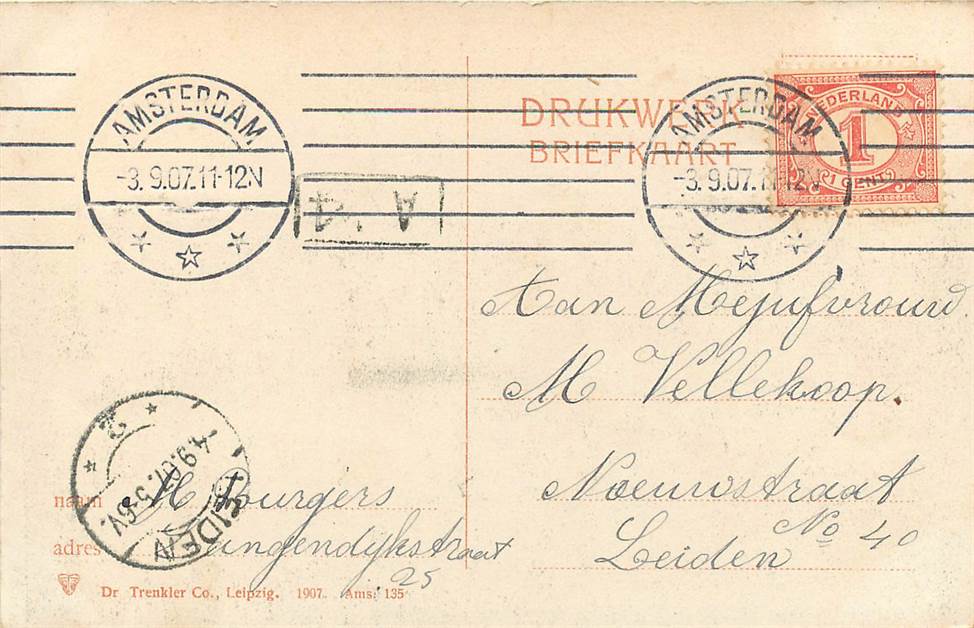 AMSTERDAM
-3. 9.07.11-12N
A 4
DRUKWERK
BRIEFKAART
AMSTERDAM
-3. 9.07.11-12N
NEDERLAND
1
1 CENT
Aan Mejufvrouw
M Vellekoop.
Noeuwstraat
No 40
Leiden
LEIDEN
4.9.07.5-6V.
2
naam M Burgers
adres Langendijkstraat
25
Dr Trenkler Co., Leipzig. 1907. Ams: 135